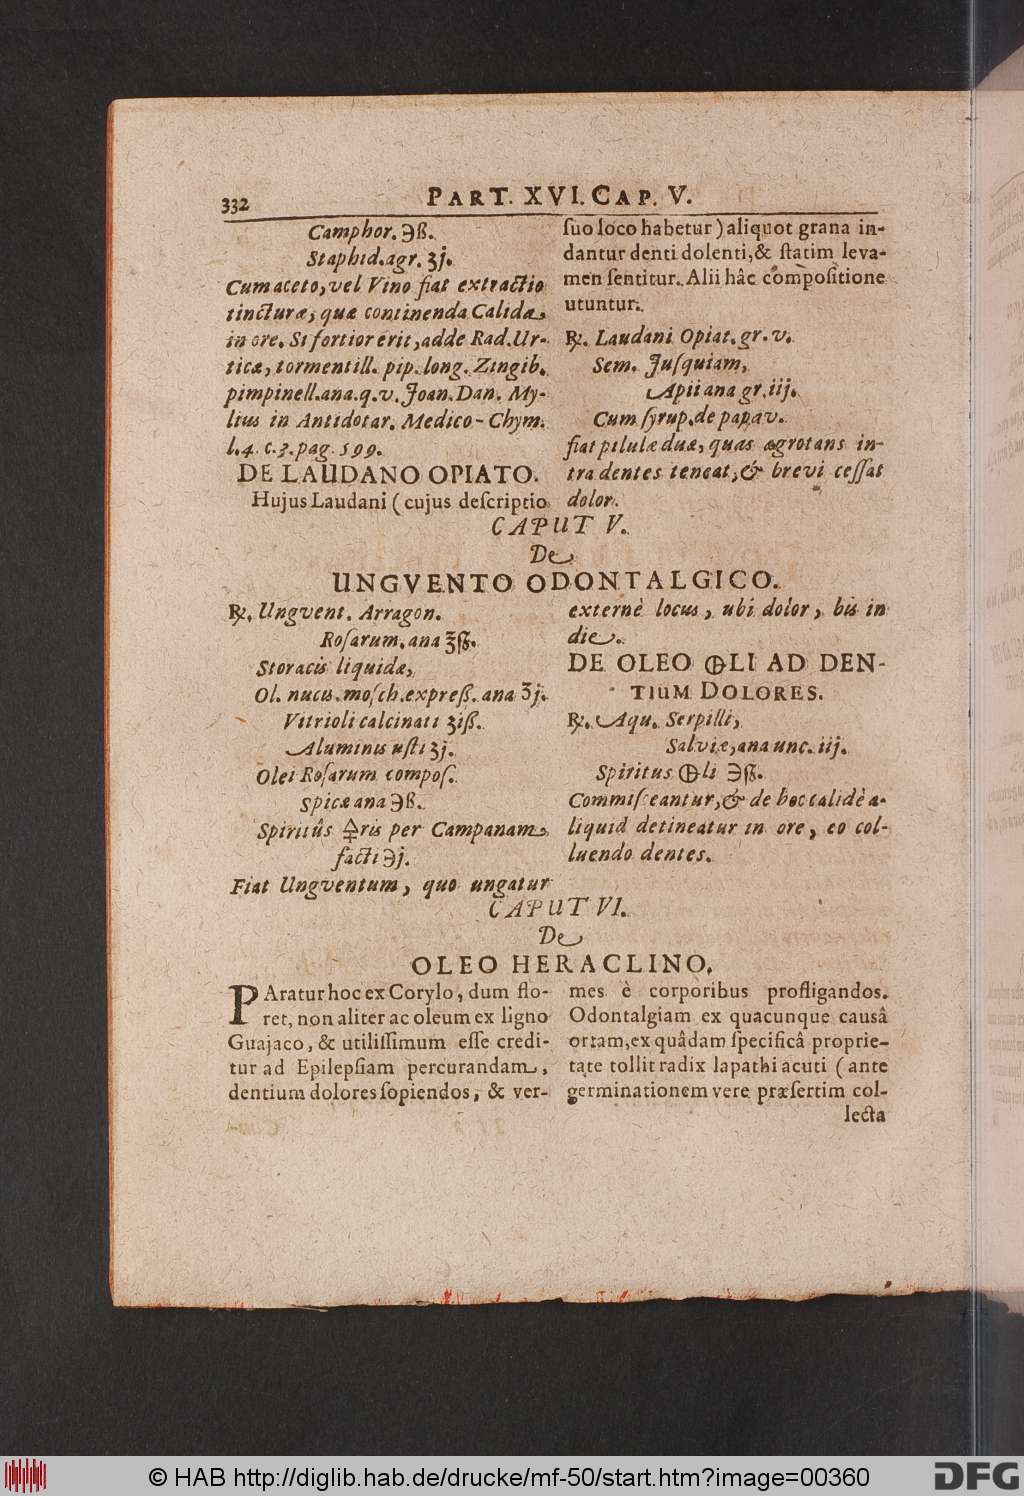 332
PART. XVI. CAP. V.
Camphor. ℈ß.
Staphid. agr. ʒj.
Cum aceto, vel Vino fiat extractio
tincturæ, quæ continenda Calida,
in ore. Si fortior erit, adde Rad. Ur-
ticæ, tormentill. pip. long. Zingib.
pimpinell. ana. q. v. Joan. Dan. My-
lius in Antidotar. Medico-Chym.
l. 4. c. 3. pag. 599.
DE LAUDANO OPIATO.
Hujus Laudani (cujus descriptio
suo loco habetur) aliquot grana in-
dantur denti dolenti, & statim leva-
men sentitur. Alii hâc compositione
utuntur.
℞. Laudani Opiat. gr. v.
Sem. Jusquiam,
Apii ana gr. iij.
Cum syrup. de papav.
fiat pilulæ duæ, quas ægrotans in-
tra dentes teneat, & brevi cessat
dolor.
CAPUT V.
De
UNGVENTO ODONTALGICO.
℞. Ungvent. Arragon.
Rosarum. ana ʒß.
Storacis liquidæ,
Ol. nucis. mosch. expreß. ana ʒj.
Vitrioli calcinati ʒiß.
Aluminis usti ʒj.
Olei Rosarum compos.
Spicæ ana ℈ß.
Spiritûs 🜍ris per Campanam
facti ℈j.
Fiat Ungventum, quo ungatur
externè locus, ubi dolor, bis in
die.
DE OLEO 🜖LI AD DEN-
TIUM DOLORES.
℞. Aqu. Serpilli,
Salviæ, ana unc. iij.
Spiritus 🜖li ℈ß.
Commisceantur, & de hoc calidè a-
liquid detineatur in ore, eo col-
luendo dentes.
CAPUT VI.
De
OLEO HERACLINO.
PAratur hoc ex Corylo, dum flo-
ret, non aliter ac oleum ex ligno
Guajaco, & utilissimum esse credi-
tur ad Epilepsiam percurandam,
dentium dolores sopiendos, & ver-
mes è corporibus profligandos.
Odontalgiam ex quacunque causâ
ortam, ex quâdam specificâ proprie-
tate tollit radix lapathi acuti (ante
germinationem vere præsertim col-
lecta
© HAB http://diglib.hab.de/drucke/mf-50/start.htm?image=00360
DFG